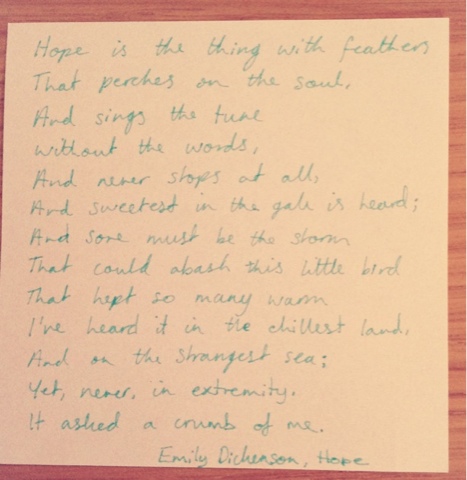 Hope is the thing with feathers
That perches on the soul,
And sings the tune
without the words,
And never stops at all,
And sweetest in the gale is heard;
And sore must be the storm
That could abash this little bird
That kept so many warm
I've heard it in the chillest land,
And on the strangest sea;
Yet, never, in extremity.
It asked a crumb of me.
Emily Dickenson, Hope